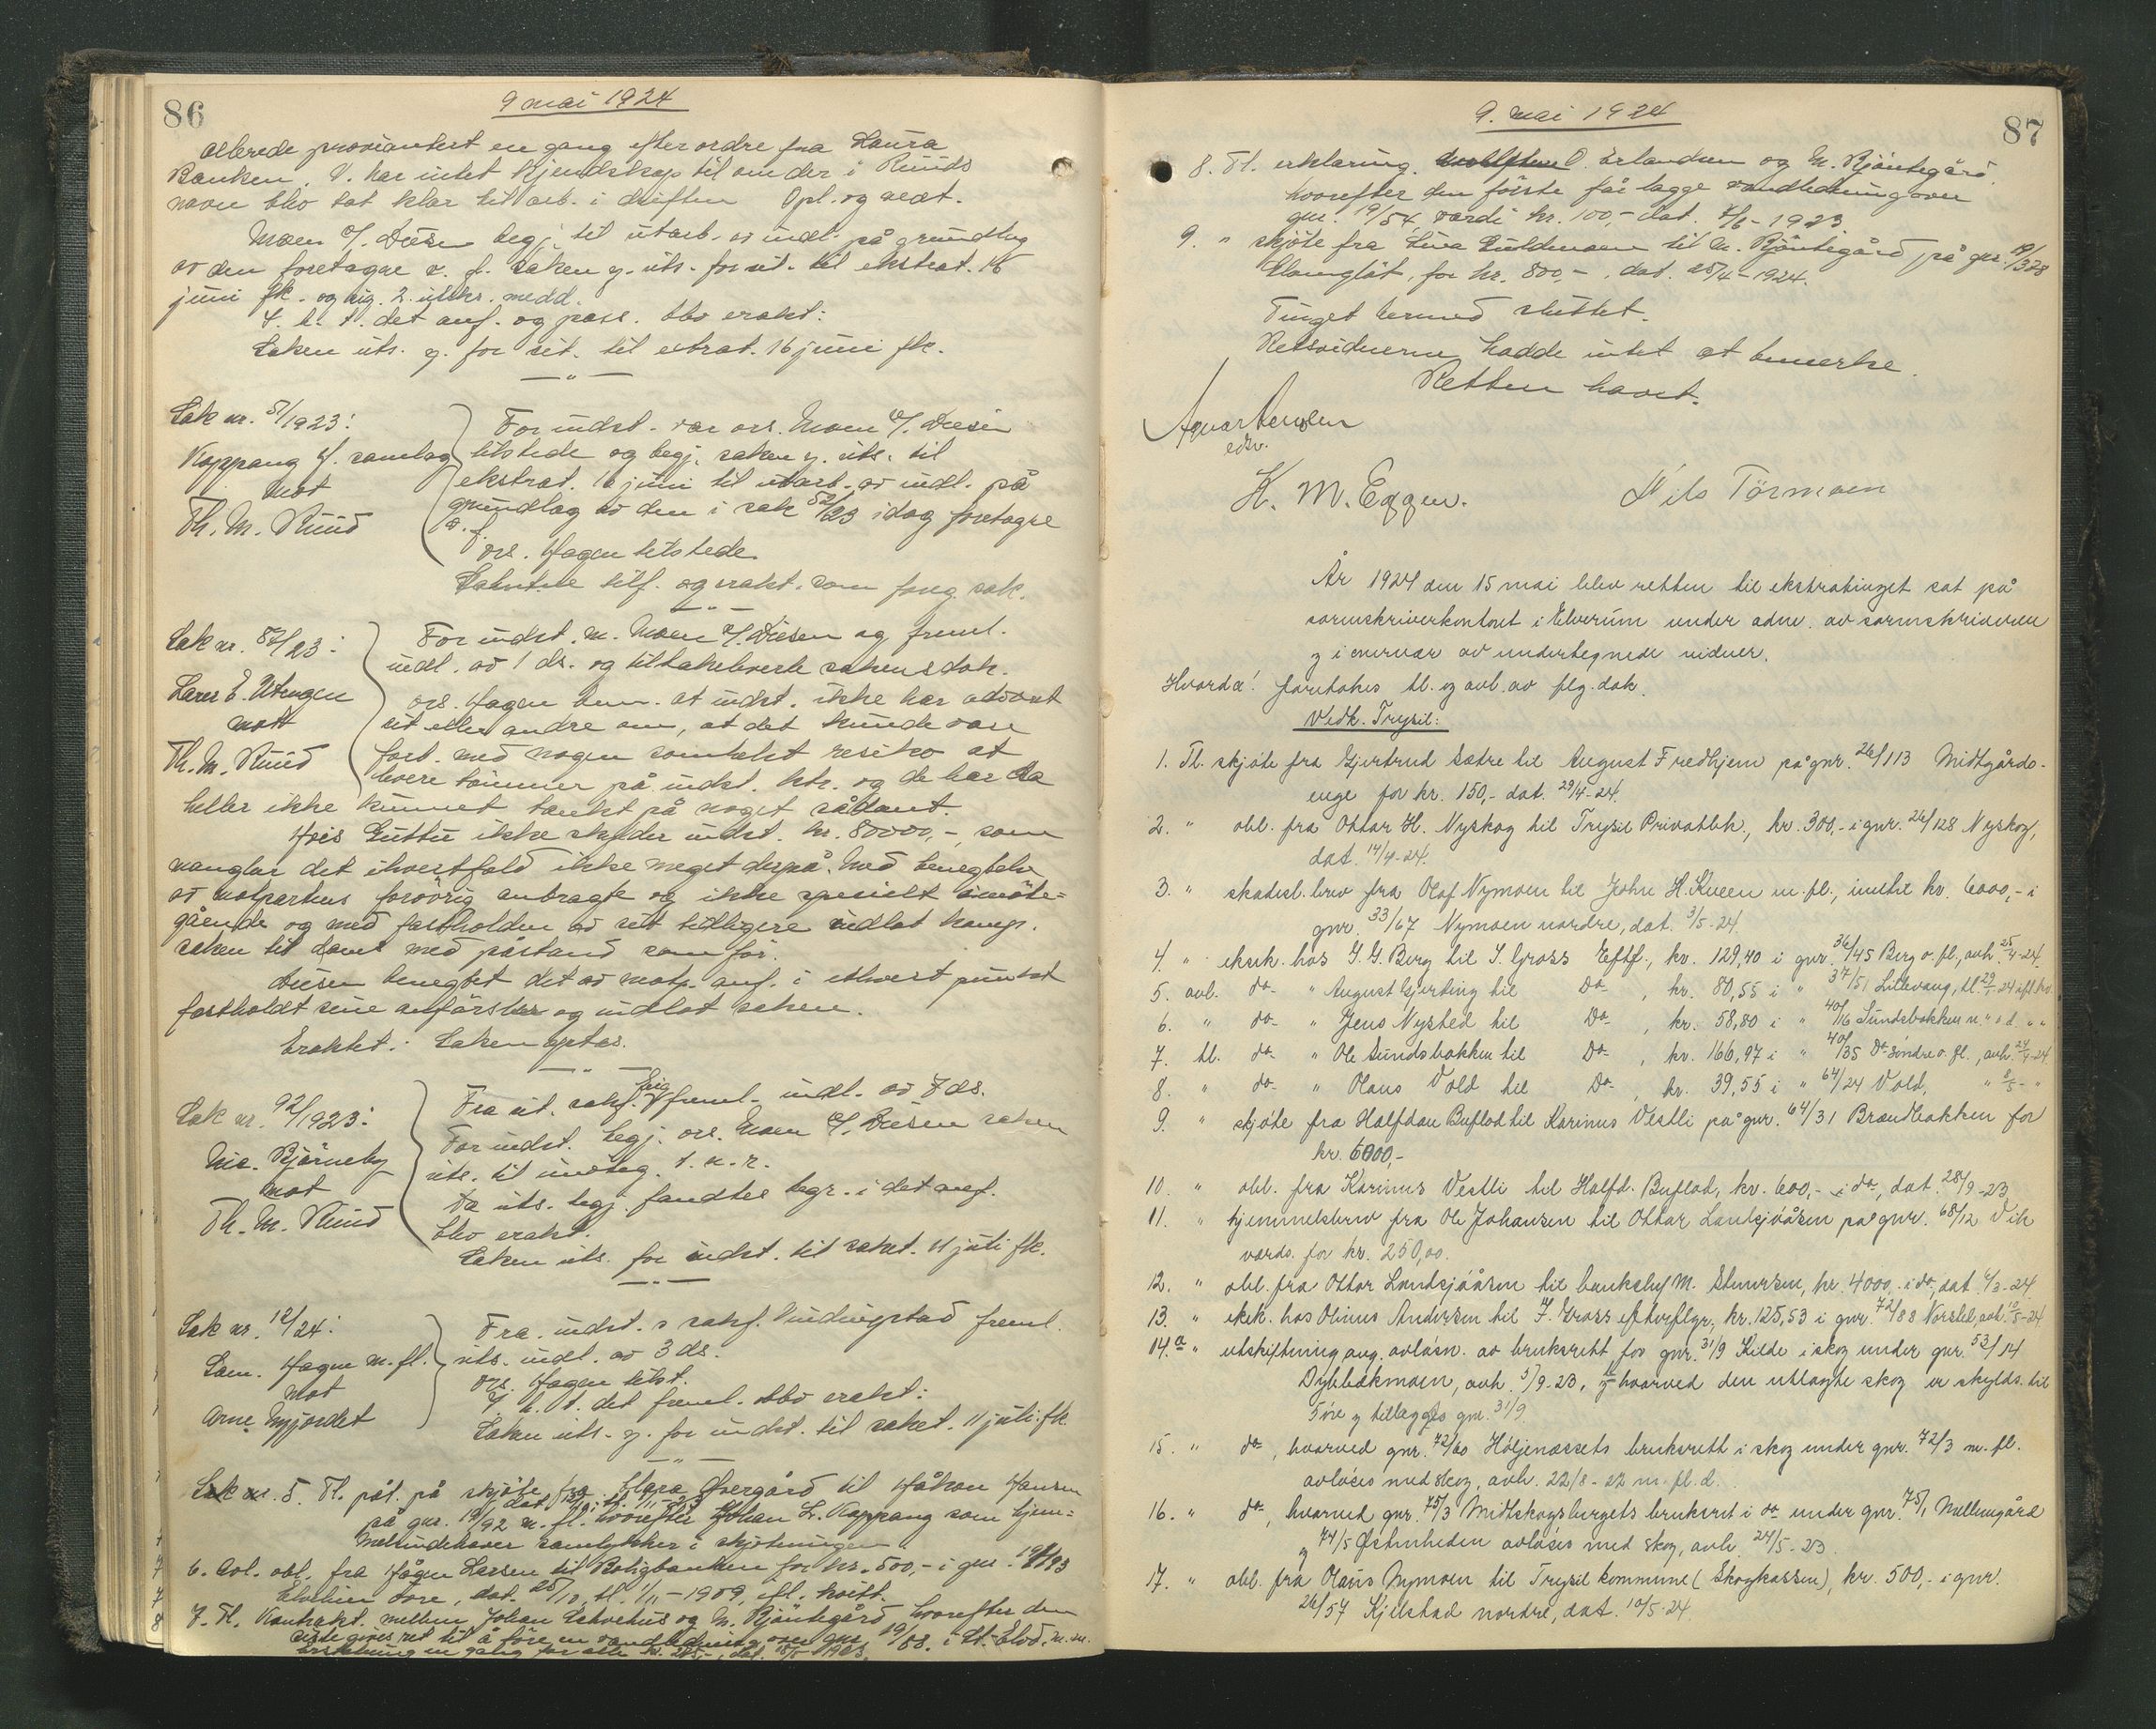 86
9 mai 1924
allerede proviantert en gang efter ordre fra Laura
Banken. V. har intet kjendskap til om der i Ruuds
navn blev sat klar til arb. i driften Opl. og vedt.
Moen v/. Diesen begj. til utarb. av indl. på grundlag
av den foretagne v. f. saken g. uts. for sit. til ekstrat. 16
juni fk. og sig. 2 utskr. medd.
S. h. t. det anf. og pass. blev erakt:
Saken uts. g. for sit. til extrat. 16 juni fk.
Sak nr. 51/1923:
Koppang h. samlag
mot
Th. M. Ruud
For indst. var ors. Moen v/. Diesen
tilstede og begj. saken g. uts. til
ekstrat. 16 juni til utarb. av indl. på
grundlag av den i sak 52/23 idag foretagne
v. f.
ors. Hagen tilstede.
Saken tilf. og erakt. som foreg. sak.
Sak nr. 87/23:
Lars E. Utengen
mot
Th. M. Ruud
For indst. m. Moen v/. Diesen og freml.
indl. av 1 ds. og tilbakeleverte sakens dok.
ors. Hagen bem. at indst. ikke har advart
sit eller andre om, at det kunde være
forb. med nogen somhelst resiko at
levere tømmer på indst. ktr. og de har da
heller ikke kunnet tænkt på noget sådant.
Hvis Guttu ikke skylder indst. kr. 80000,-, som
mangler det ihvertfald ikke meget derpå. Med benegtelse
av motpartens forøvrig anbragte og ikke specielt imøte-
gående og med fastholden av sit tidligere indlot hangs.
saken til doms med påstand som før.
Diesen benegtet det av motp. anf. i ethvert punkt
fastholdt sine anførsler og indlot saken.
Eraktet: Saken optas.
Sak nr. 92/1923:
Nic. Bjørneby
mot
Th. M. Ruud
Fra sit. sakf. Eng freml. indl. av 7 ds.
For indst. begj. ors. Moen v/. Diesen saken
uts. til imøteg. s. n. r.
Da uts. begj. fandtes begr. i det anf.
blev erakt.
Saken uts. for indst. til sakst. 11 juli fk.
Sak nr. 12/24:
Sam. Hagen m. fl.
mot
Arne Myjordet
Fra indst. s sakf. Vindingstad freml.
uts. indl. av 3 ds.
ors. Hagen tilst.
S. h. t. det freml. blev erakt:
Saken uts. g. for indst. til sakst. 11 juli fk.
Sak nr. 5. Tl. påt. på skjøte fra Clara Øvergård til Håkon Hansen
på gnr. 19/92 m. fl. hvorefter Johan L. Koppang som hjem-
melsindehaver samtykker i skjøtningen
6. Avl. obl. fra Hågen Larsen til Boligbanken for kr. 500,- i gnr. 19/193
Elvelien øvre, dat. 25/10, tl. 1/11 - 1909, fl. kvitt.
7. Tl. Kontrakt mellem Johan Østvehus og M. Bjøntegård hvorefter den
siste gives ret til å føre en vandledning over gnr. 19/58. i St.-Elvd. m. m.
Erstatning en gang for alle kr. 25,-, dat. 15/5 1923.
9. mai 1924
87
8. Tl. erklæring. O. Erlandsen og M. Bjøntegård
hvorefter den første får lægge vandledning over
gnr. 19/54, værdi kr. 100,- dat. 7/6 - 1923.
9. " skjøte fra Lina Guldmoen til M. Bjøntegård på gnr. 19/328
for kr. 800,-, dat. 25/4 - 1924.
Tinget hermed sluttet.
Retsvidnerne hadde intet at bemerke.
Retten hævet.
edv.
K. M. Eggen. Nils Tørmoen
År 1924 den 15 mai blev retten til ekstratinget sat på
sorenskriverkontoret i Elverum under adm. av sorenskriveren
g i overvær av undertegnede vidner.
Hvorda! foretokes tl. og avl. av flg. dok.
Vedk. Trysil:
1. Tl. skjøte fra Gjertrud Sætre til August Fredhjem på gnr. 26/113 Midtgårds-
enge for kr. 150,- dat. 29/4-24.
2. " obl. fra Ottar H. Nyskog til Trysil Privatbk., kr. 300,- i gnr. 26/128 Nyskog,
dat. 14/4-24.
3. " skadesl. brev fra Olaf Nymoen til John H. Kveen m. fl., indtil kr. 6000,- i
gnr. 33/67 Nymoen nordre, dat. 3/5-24.
4. " eksek. hos G. G. Berg til I. Gross Eftf., kr. 129,40 i gnr. 36/45 Berg o. fl., avh. 25/4-24.
5. avl. do " August Gjerting til Do, kr. 80,55 i " 37/51 Lillevang, tl. 29/1-24 eft. kv.
6. " do " Jens Nysted til Do, kr. 58,80 i " 40/16 Sundsbakken n. " s d. " "
7. tl. do " Ole Sundsbakken til Do, kr. 166,97 i " 40/35 Do søndre o. fl., avh. 24/4-24
8. " do " Olaus Vold til Do, kr. 39,55 i " 64/24 Vold, " 8/5- "
9. " skjøte fra Halfdan Buflod til Karinus Vestli på gnr. 64/31 Brændbakken for
kr. 6000,-
10. " obl. fra Karinus Vestli til Halfd. Buflod, kr. 600,- i do, dat. 28/9-23
11. " hjemmelsbrev fra Ole Johansen til Ottar Landsjøåsen på gnr. 68/12 Vik
værds. for kr. 250,00.
12. " obl. fra Ottar Landsjøåsen til banksjef M. Stenersen, kr. 4000,- i do, dat. 6/3-24
13. " eksek. hos Olinus Andersen til I. Gross efterflgr., kr. 125,53 i gnr. 72/88 Norstel, avh. 10/5-24
14.a " utskiftning ang. avløsn. av bruksrett for gnr. 31/9 Kilde i skog under gnr. 53/14
Dybbækmoen, avh. 5/9-23, g hvorved den utlagte skog er skylds. til
5 øre g tillægges gnr. 31/9
15. " do, hvorved gnr. 72/60 Høljenæssets bruksrett i skog under gnr. 72/3 m. fl.
avløses med skog, avh. 22/8-22 m. fl. d.
16. " do, hvorved gnr. 75/3 Midtskogsbergets bruksret i do under gnr. 75/1 Mellemgård
g 74/5 Østmheden avløses med skog, avh. 24/5-23.
17. " obl. fra Olaus Nymoen til Trysil kommune (Skogkassen), kr. 500,- i gnr.
26/57 Kjelstad nordre, dat. 10/5-24.